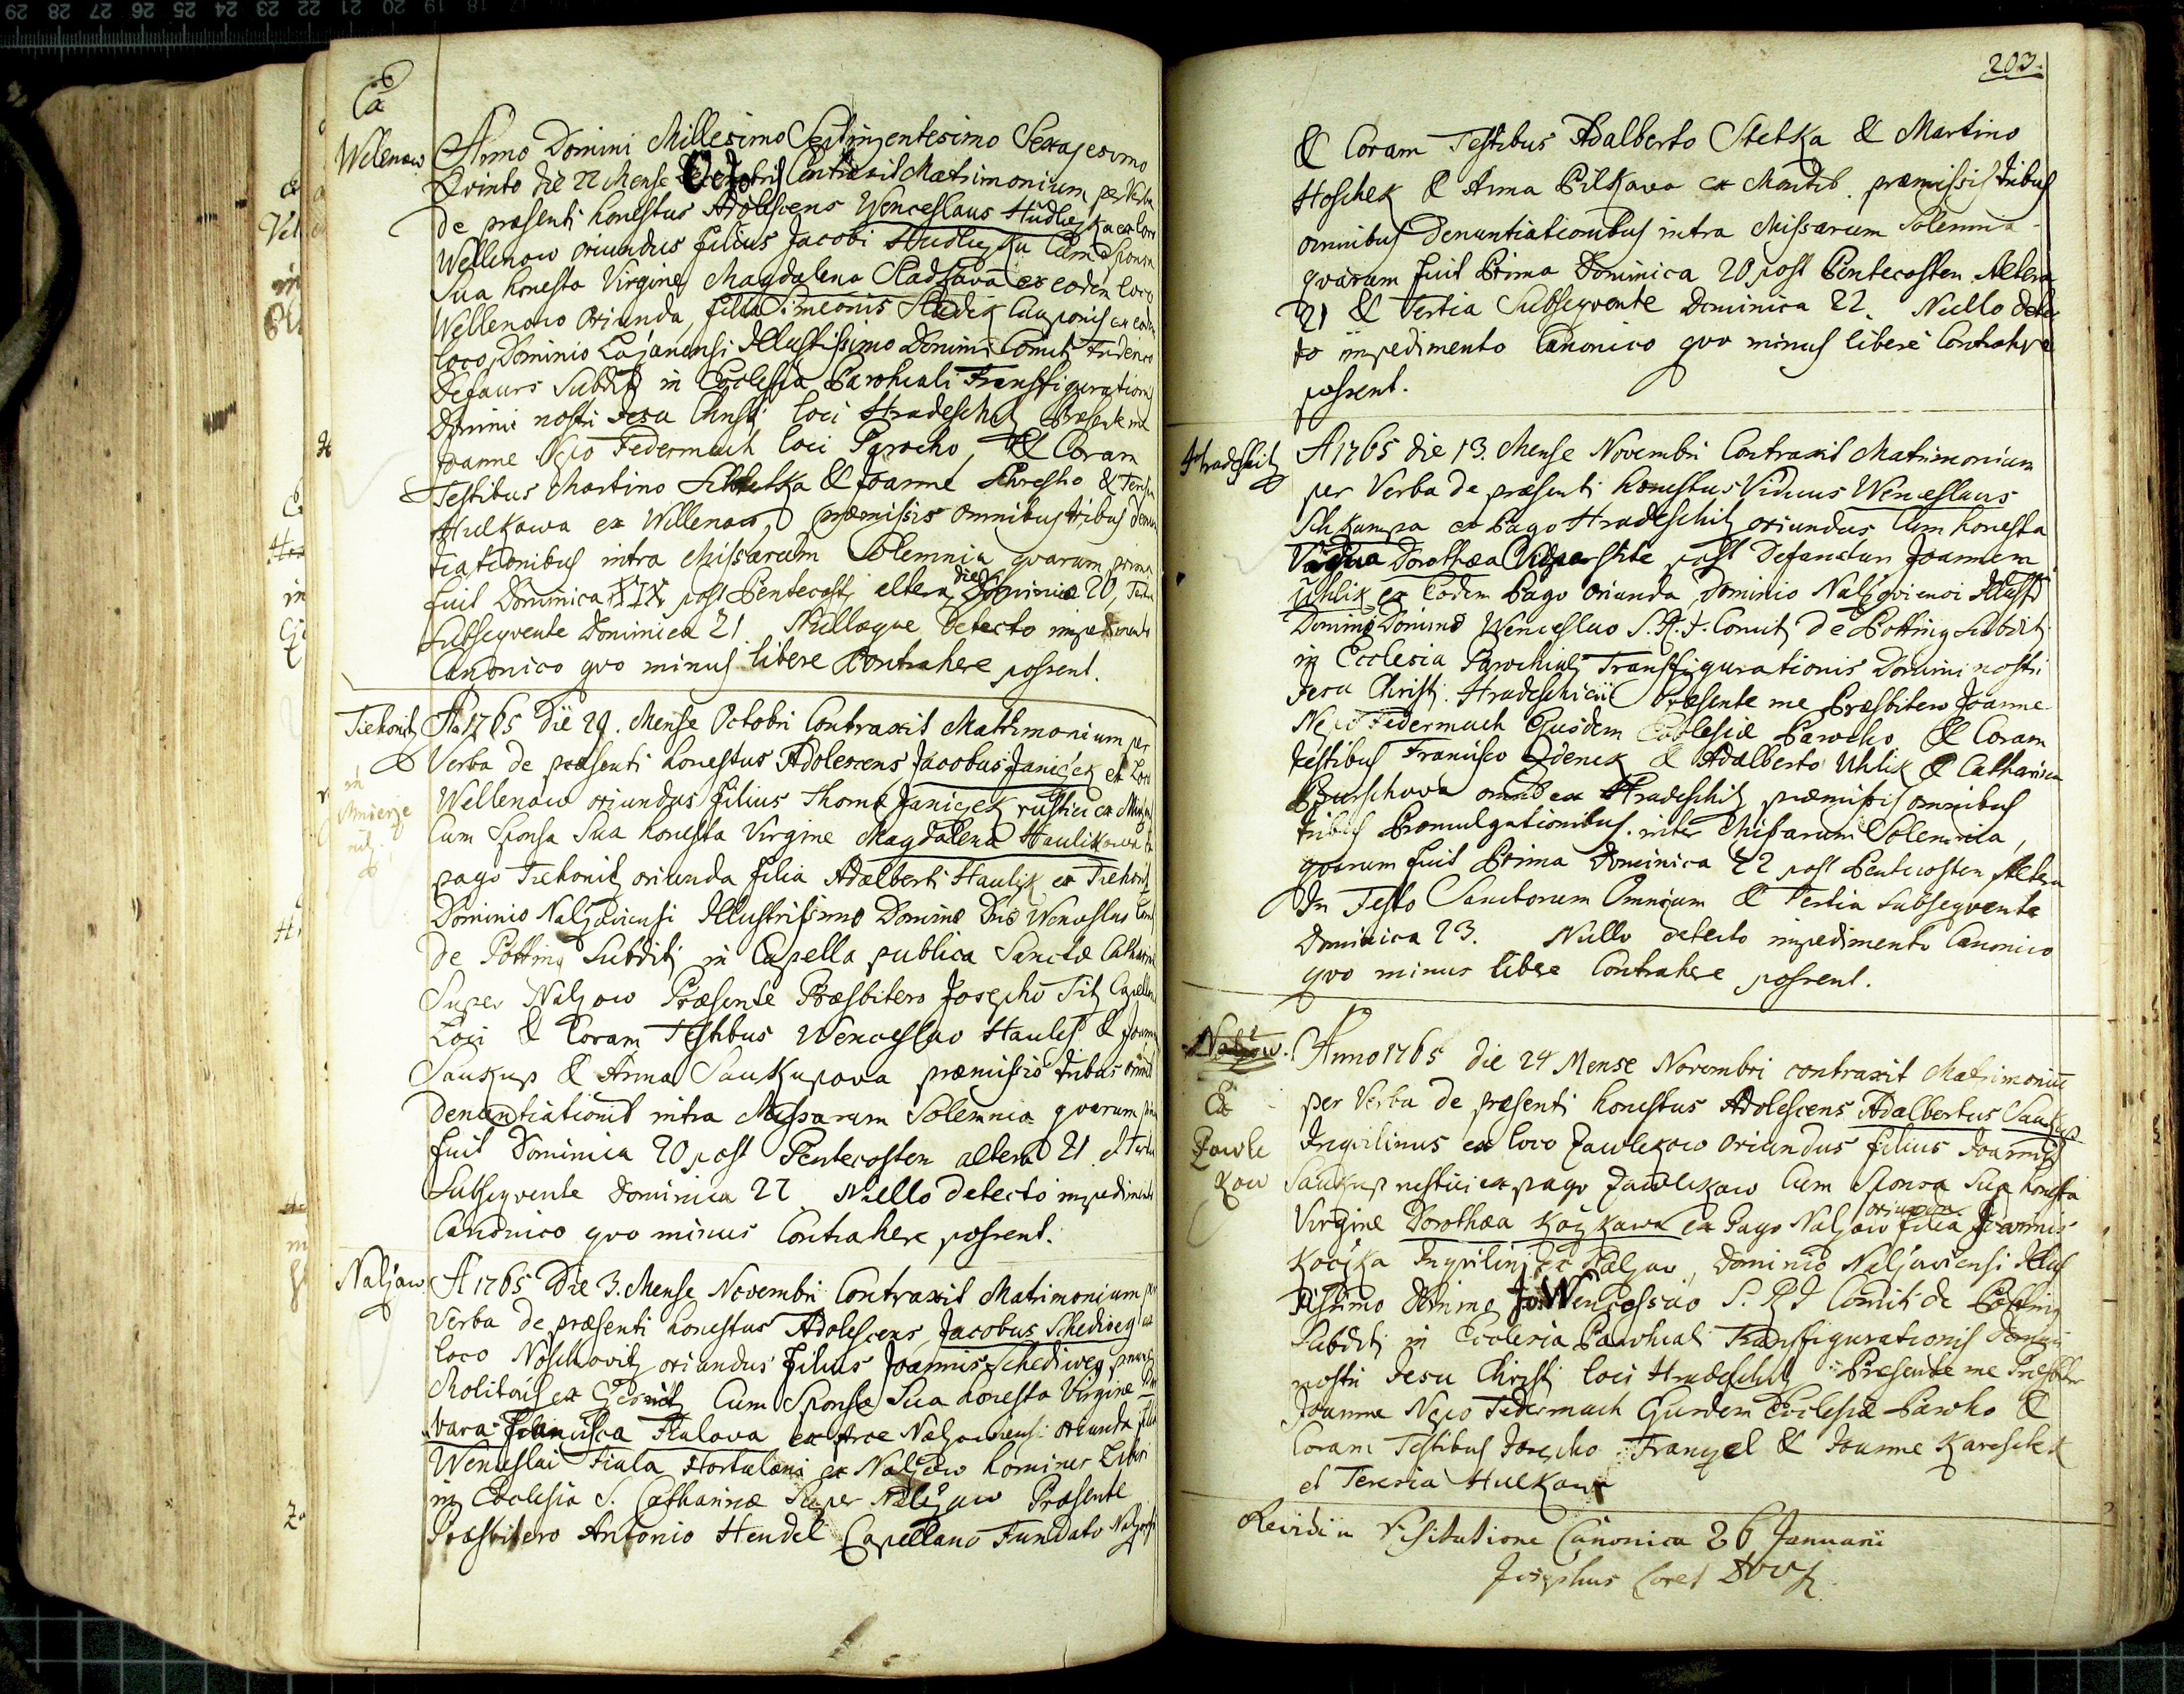 Ex
Welenow
Anno Domini Millesimo Septingentesimo Sexagesimo
Qvinto die 22 Mense Octobris Contraxit Matrimonium per Verba
de præsenti honestus Adolescens Wenceslaus Hudlezka ex loco
Wellenow oriundus filius Jacobi Hudlezka Cum Sponsa
Sua honesta Virgine Magdalena Sladkava ex eodem loco
Wellenow Oriunda, filia Simeonis Sladek Cauponis ex eodem
loco, Dominio Lazanensi Illustrissimo Domini Comiti Friderico
Defours Subditi in Ecclesia Parochiali Transfigurationis
Domini nostri Jesu Christi loci Hradeschitz Præsente me
Joanne Nepo Federmach loci Parocho, & Coram
Testibus Martino & Joanne &
Hulkawa ex Wellenow, præmissis omnibus tribus denun
tiationibus intra Missarum Solemnia qvarum prima
fuit Dominica XIX post Pentecost: altera die Dominica 20, Tertia
Subseqvente Dominica 21. Nulloque Detecto impedimento
Canonico qvo minus libere Contrahere possent.
Tiehonitz
A 1765 Die 29. Mense Octobri Contraxit Matrimonium per
Verba de præsenti honestus Adolescens Jacobus Janiczek ex Loco
Wellenow oriundus filius Thomæ Janiczek rustici ex
Cum Sponsa Sua honesta Virgine Magdalena Haulikowa ex
pago Tiehonitz oriunda filia Adalberti Haulik ex Tiehonitz
Dominio Nalzoviensi Illustrissimo Domino Dno Wenceslao Comit
de Potting Subditi in Capella publica Sanctæ Catharinæ
Super Nalzow Præsente Præsbitero Josepho Titz Capellano
Loci & Coram Testibus Wenceslao Haules & Joanne
Saukup & Anna Saukupova præmissis tribus omnib
denuntiationib intra Missarum Solemnia qvarum prima
fuit Dominica 20 post Pentecosten altera 21. et Tertia
Subseqvente Dominica 22 Nullo detecto impedimento
Canonico qvo minus Contrahere possent.
Nalzow
A 1765 Die 3. Mense Novembri Contraxit Matrimonium per
Verba de præsenti honestus Adolescens Jacobus Schediweg ex
loco Noschovitz oriundus filius Joannis Schediweg
Molitoris ex Cum Sponsa Sua honesta Virgine Bar
vara Francisca Fialova ex Arce Nalzoviensi oriunda filia
Wenceslai Fiala Hortulani ex Nalzow homines Liberi
in Ecclesia S. Catharinæ Super Nalzow Præsente
Præsbitero Antonio Hendel Capellano Fundato Nalzovii
203.
& Coram Testibus Adalberto Stetka & Martino
Hoschek & Anna Bilkava ex præmissis tribus
omnibus Denuntiationibus intra Missarum Solemnia
qvarum fuit Prima Dominica 20 post Pentecosten Altera
21 & Tertia Subseqvente Dominica 22. Nullo detec
to impedimento Canonico qvo minus libere Contrahere
possent.
Hradeschitz
A 1765 die 13. Mense Novembri Contraxit Matrimonium
per Verba de præsenti honestus Viduus Wenceslaus
Schkampa ex Pago Hradeschitz oriundus Cum honesta
Vidua Dorothæa post Defunctum Joannem
Uhlik ex Eodem Pago oriunda, Dominio Nalzoviensi Illustr
Domino Domino Wenceslao S. R. I. Comiti de Potting Subditi
in Ecclesia Parochiali Transfigurationis Domini nostri
Jesu Christi Hradeschicii Præsente me Præsbitero Joanne
Nepo Federmach Ejusdem Ecclesiæ Parocho & Coram
testibus Francisco Zdenek & Adalberto Uhlik & Catharina
Burschova omnib ex Hradeschitz præmissis omnibus
tribus Promulgationibus inter Missarum Solemnia,
qvarum fuit Prima Dominica 22 post Pentecosten Altera
In Festo Sanctorum Omnium & Tertia Subseqvente
Dominica 23. Nullo detecto impedimento Canonico
qvo minus libere Contrahere possent.
Nalzow.
Ex
Zawle
kow
Anno 1765 die 24 Mense Novembri contraxit Matrimoniū
per Verba de præsenti honestus Adolescens Adalbertus Saukup
Inqvilinus ex loco Zawlekow oriundus filius Joannis
Saukup rustici ex pago Zawlekow Cum Sponsa Sua honesta
Virgine Dorothæa Koczkawa ex Pago Nalzow oriunda filia Joannis
Koczka Inqvilini ex Nalzow, Dominio Nalzoviensi Illus
trissimo Domino Jo. Wenceslao S. R I Comiti de Potting
Subditi in Ecclesia Parochiali Transfigurationis Domini
nostri Jesu Christi loci Hradeschitz Præsente me Præsbiter
Joanne Nepo Federmach Ejusdem Ecclesiæ Parocho &
Coram Testibus Josepho Frangel & Joanne Kareschek
et Teresia Hulkowa
Revidi in Visitatione Canonica 26 Januarii
Josephus